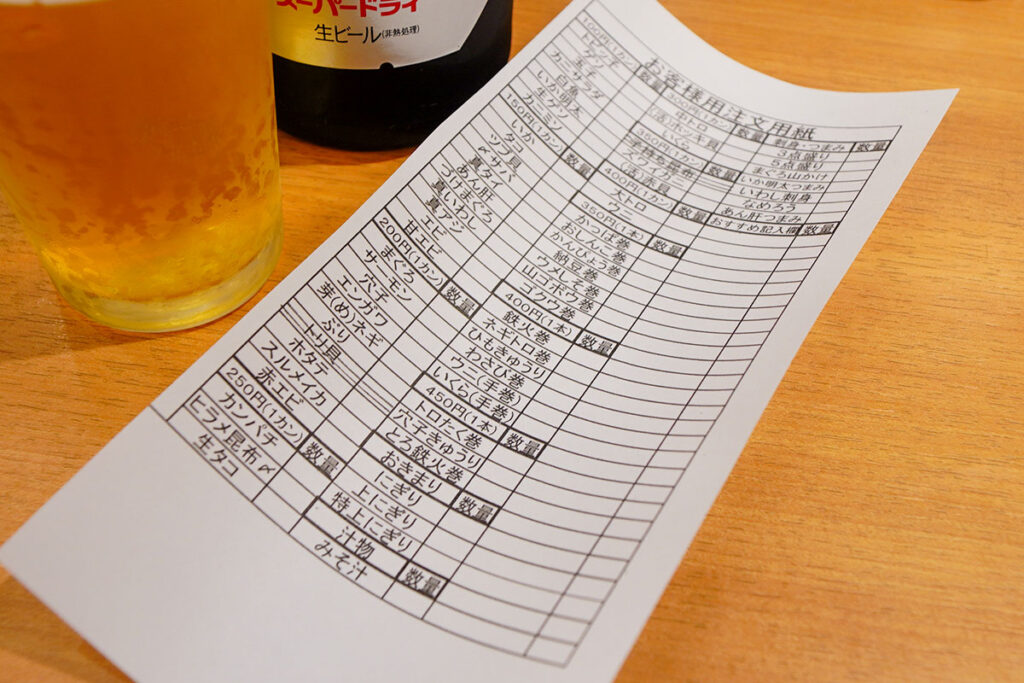 スーパードライ
生ビール(非熱処理)
お客様用注文用紙
100円(1カン)
数量
玉子
カニサラダ
白魚
いか明太
生ゲソ
カニミソ
150円(1カン)
数量
いか
タコ
ツブ貝
〆サバ
真タイ
あん肝
づけまぐろ
真いわし
真アジ
エビ
甘エビ
200円(1カン)
数量
まぐろ
サーモン
穴子
エンガワ
芽(め)ネギ
ぶり
トリ貝
ホタテ
スルメイカ
赤エビ
250円(1カン)
数量
カンパチ
ヒラメ昆布〆
生タコ
300円(1カン)
数量
中トロ
(活)ホッキ貝
いくら
350円(1カン)
数量
ズワイガニ
(活)赤貝
400円(1カン)
数量
大トロ
ウニ
350円(1本)
数量
かっぱ巻
おしんこ巻
かんぴょう巻
納豆巻
ウメしそ巻
山ゴボウ巻
ゴクウ巻
400円(1本)
数量
鉄火巻
ネギトロ巻
ひもきゅうり
わさび巻
ウニ(手巻)
いくら(手巻)
450円(1本)
数量
トロたく巻
穴子きゅうり
とろ鉄火巻
おきまり
数量
にぎり
上にぎり
特上にぎり
汁物
数量
みそ汁
刺身・つまみ
数量
3点盛り
5点盛り
まぐろ山かけ
いか明太つまみ
いわし刺身
なめろう
あん肝つまみ
おすすめ記入欄
数量